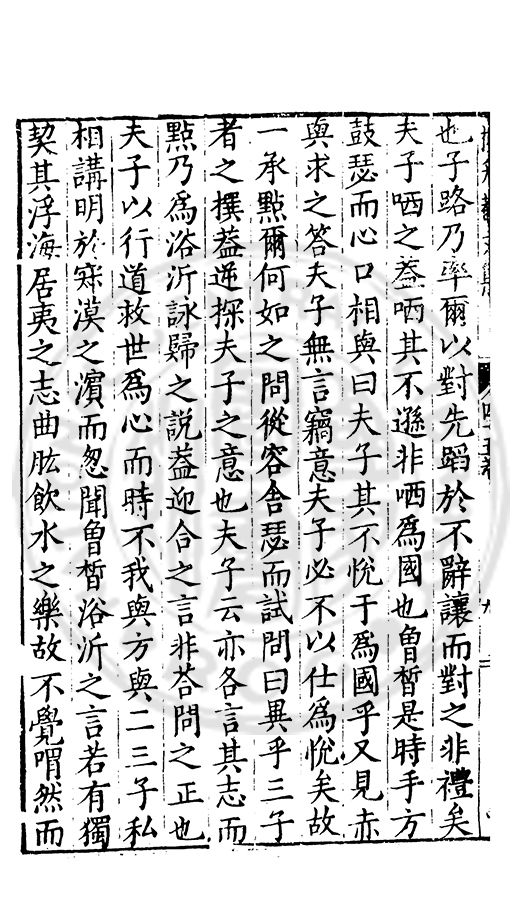 也子路乃率爾以對先蹈於不辭讓而對之非禮矣
夫子哂之葢哂其不遜非哂爲國也曾晳是時手方
鼓瑟而心口相與曰夫子其不悅于爲國乎又見赤
與求之答夫子無言竊意夫子必不以仕爲悅矣故
一承點爾何如之問從容舍瑟而試問曰異乎三子
者之撰葢逆探夫子之意也夫子云亦各言其志而
點乃爲浴沂詠歸之說葢迎合之言非荅問之正也
夫子以行道救世爲心而時不我與方與二三子私
相講明於寂漠之濱而忽聞曾晳浴沂之言若有獨
契其浮海居夷之志曲肱飲水之樂故不覺喟然而